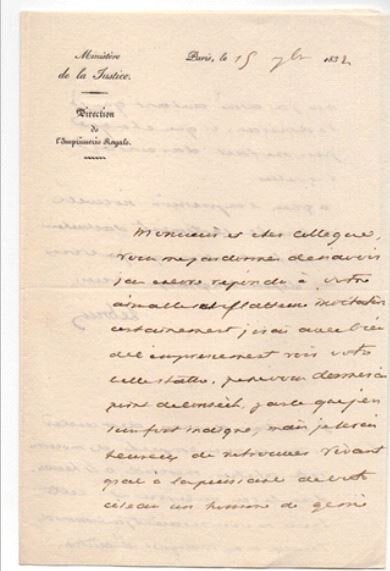 Ministère
de la Justice.
Direction
de
l'Imprimerie Royale.
Paris, le 15 9bre 1832
Monsieur et cher collègue,
vous me pardonnerez de n'avoir
pas encore répondu à votre
aimable et flatteuse invitation
certainement j'irai avec bien
de l'empressement voir votre
belle statue, je ne vous donnerai
point de conseils, parce que j'en
suis fort indigne, mais je serai
heureux de retrouver vivant
grâce à la puissance de votre
ciseau un homme de génie